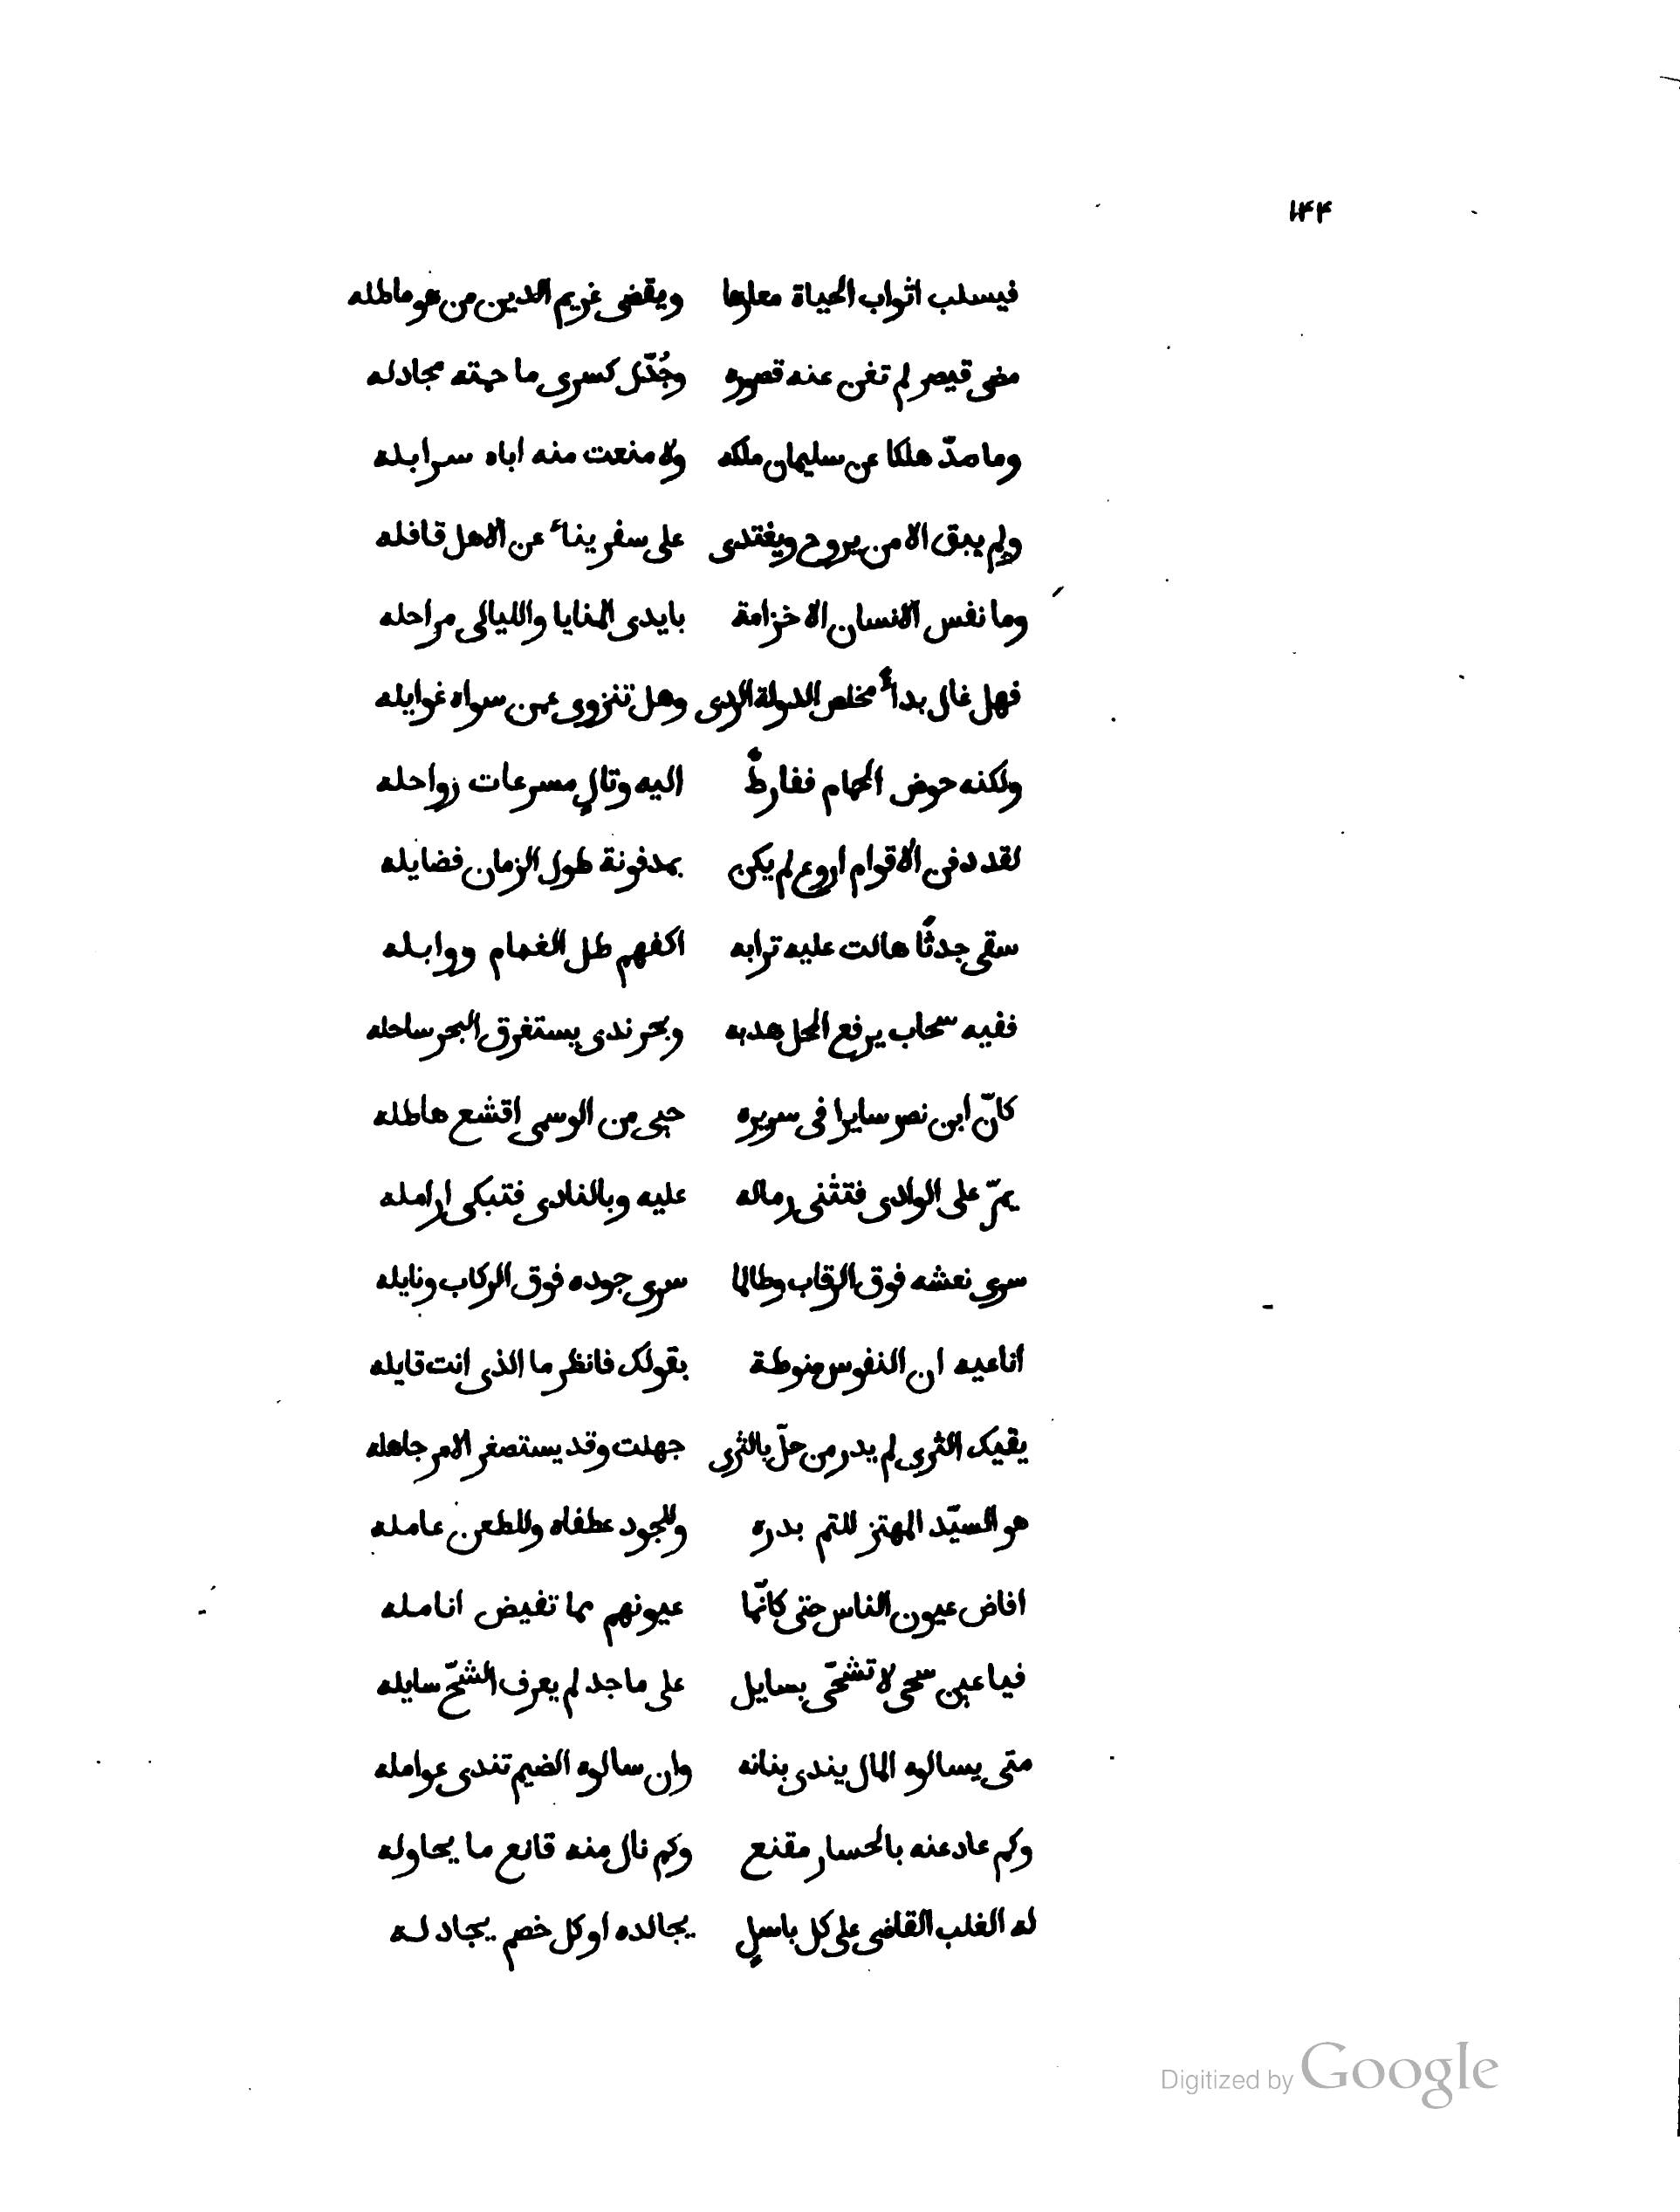 ۱۴۴
فيسلب اثواب الحياة معارها ويقضى غريم الدين من هو ماطله
مضى قيصر لم تغن عنه قصوره وجُدّل كسرى ما حمته مجادله
وما صدّ هلكا عن سليمان ملكه ولا منعت منه اباه سرابله
ولم يبق الا من يروح ويغتدى على سفر يناء عن الاهل قافله
وما نفس الانسان الا خزامة بايدى المنايا والليالى مراحله
فهل غال بدأ مخلص الدولة الردى وهل تنزوى عمن سواه غوايله
ولكنه حوض الحمام ففارطٌ اليه وتالٍ مسرعات رواحله
لقد دفن الاقوام اروع لم يكن بمدفونة طول الزمان فضايله
سقى جدثًا هالت عليه ترابه اكفهم طل الغمام ووابله
ففيه سحاب يرفع المحل هدبه وبحر ندى يستغرق البحر ساحله
كانّ ابن نصر سايرا فى سريره حبى من الوسمى اقشع هاطله
يمرّ على الوادى فتثنى رماله عليه وبالنادى فتبكى ارامله
سرى نعشه فوق الرقاب وطالما سرى جوده فوق الركاب ونايله
اناعيه ان النفوس منوطة بقولك فانظر ما الذى انت قايله
بفيك الثرى لم يدر من حلّ بالثرى جهلت وقد يستصغر الامر جاهله
هو السيّد المهتز للتم بدره وللجود عطفاه وللطعن عامله
افاض عيون الناس حتى كانّما عيونهم مما تفيض انامله
فيا عين سحى لا تشحّى بسايل على ماجد لم يعرف الشحّ سايله
متى يسالوه المال يندى بنانه وان سالوه الضيم تندى عوامله
وكم عاد عنه بالخسار مقنع وكم نال منه قانع ما يحاوله
له الغلب القاضى على كل باسلٍ يجالده او كل خصم يجادله
Digitized by Google